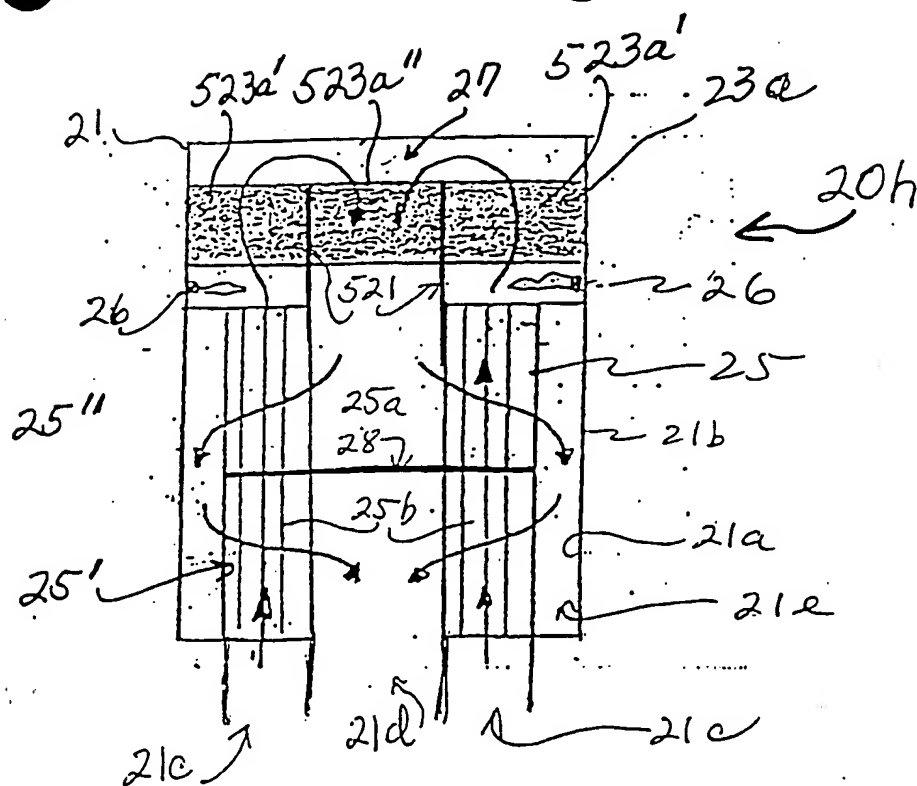 523a' 523a" 27 523a' 23a
21
20h
26 521 26
25
25" 25a 21b
28
25b
21a
25' 21e
21c 21d 21c